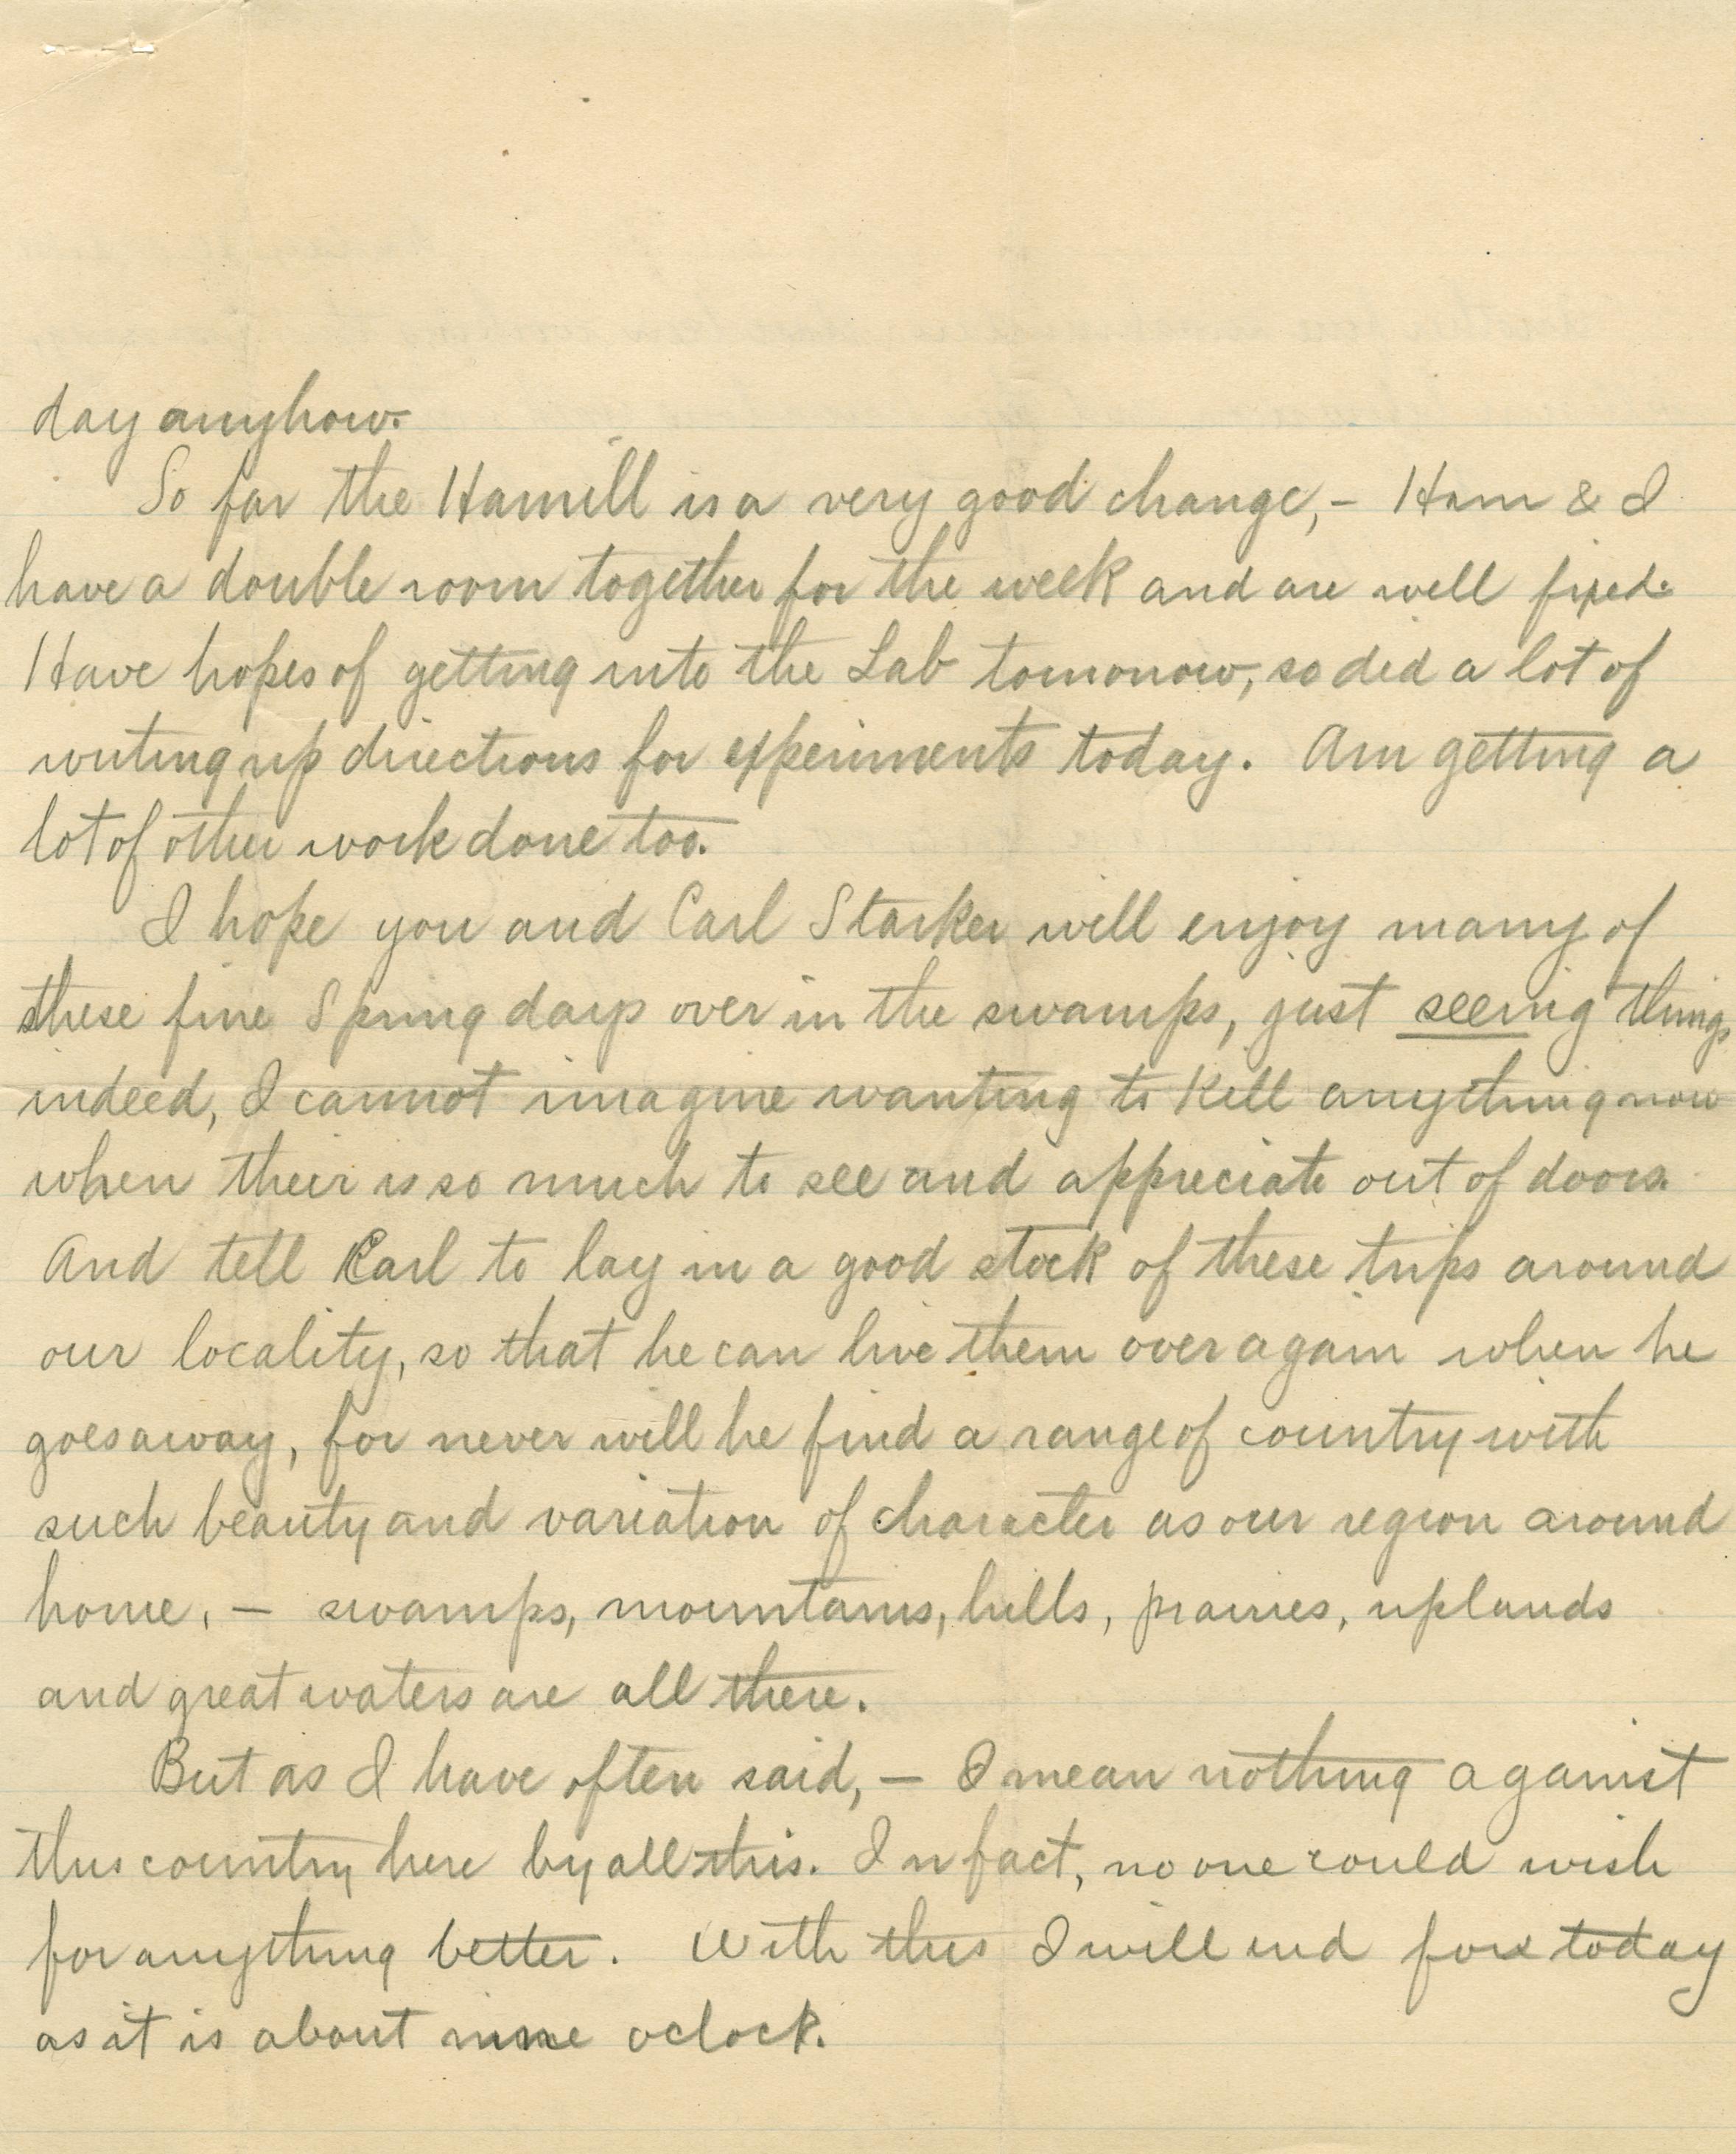 day anyhow.
So far the Hamill is a very good change, – Ham & I
have a double room together for the week and are well fixed.
Have hopes of getting into the Lab tomorrow, so did a lot of
writing up directions for experiments today. Am getting a
lot of other work done too.
I hope you and Carl Starker will enjoy many of
these fine Spring days over in the swamps, just seeing things
indeed, I cannot imagine wanting to kill anything now
when their is so much to see and appreciate out of doors.
And tell Carl to lay in a good stock of these trips around
our locality, so that he can live them over again when he
goes away, for never will he find a range of country with
such beauty and variation of character as our region around
home, – swamps, mountains, hills, prairies, uplands
and great waters are all there.
But as I have often said, – I mean nothing against
this country here by all this. In fact, no one could wish
for anything better. With this I will end for today
as it is about nine oclock.